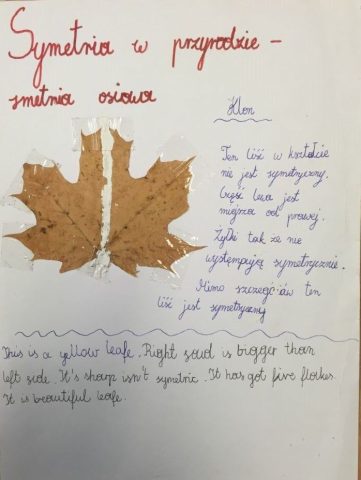 Symetria w przyrodzie –
smetria osiowa
Klon
Ten liść w kształcie
nie jest symetryczny.
Część lewa jest
mniejsza od prawej.
Żyłki także nie
występują symetrycznie.
Mimo szczegółów ten
liść jest symetryczny
This is a yellow leafe. Right soud is bigger than
left side. It's sharp isn't symetric. It has got five flakes.
It is beautiful leafe.